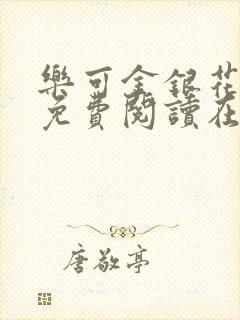 樂可金銀花
免費閱讀在
唐敬亭